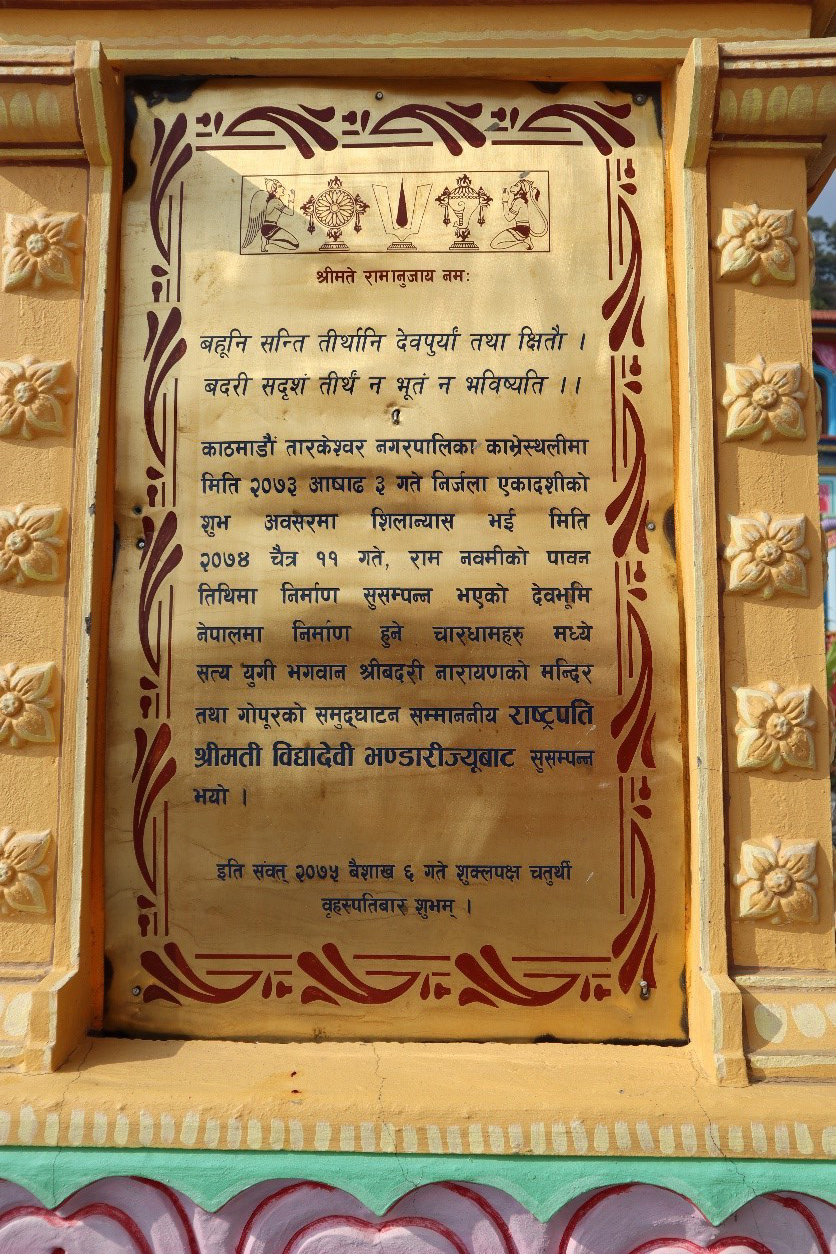 श्रीमते रामानुजाय नमः
बहूनि सन्ति तीर्थानि देवपुर्यां तथा क्षितौ ।
बदरी सदृशं तीर्थं न भूतं न भविष्यति ।।
काठमाडौं तारकेश्वर नगरपालिका काभ्रेस्थलीमा
मिति २०७३ आषाढ ३ गते निर्जला एकादशीको
शुभ अवसरमा शिलान्यास भई मिति
२०७४ चैत्र ११ गते, राम नवमीको पावन
तिथिमा निर्माण सुसम्पन्न भएको देवभूमि
नेपालमा निर्माण हुने चारधामहरु मध्ये
सत्य युगी भगवान श्रीबदरी नारायणको मन्दिर
तथा गोपूरको समुद्घाटन सम्माननीय राष्ट्रपति
श्रीमती विद्यादेवी भण्डारीज्यूबाट सुसम्पन्न
भयो ।
इति संवत् २०७५ बैशाख ६ गते शुक्लपक्ष चतुर्थी
वृहस्पतिबार शुभम् ।